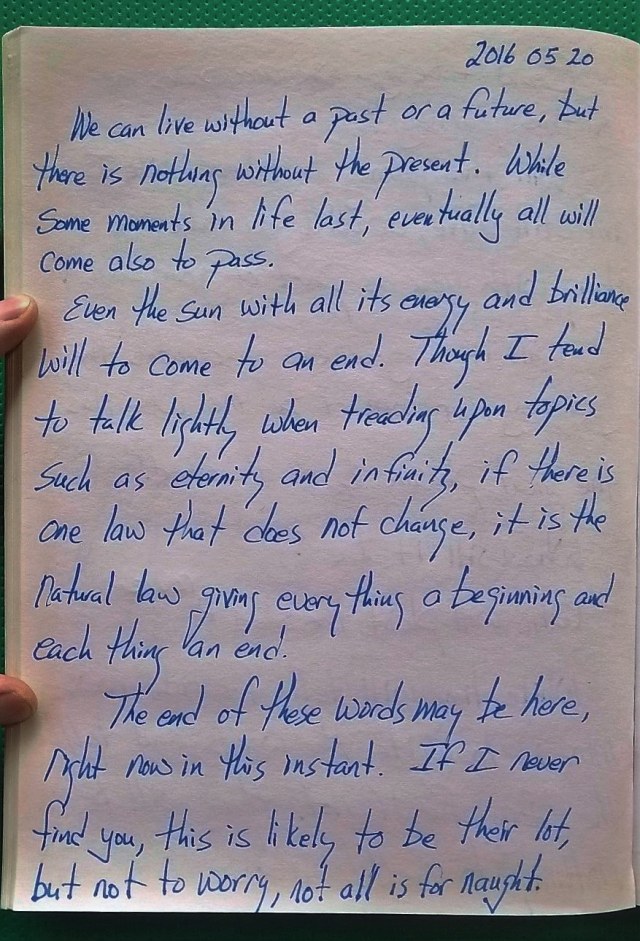 2016 05 20
We can live without a past or a future, but
there is nothing without the present. While
some moments in life last, eventually all will
come also to pass.
Even the sun with all its energy and brilliance
will to come to an end. Though I tend
to talk lightly when treading upon topics
such as eternity and infinity, if there is
one law that does not change, it is the
natural law giving every thing a beginning and
each thing an end.
The end of these words may be here,
right now in this instant. If I never
find you, this is likely to be their lot,
but not to worry, not all is for naught.